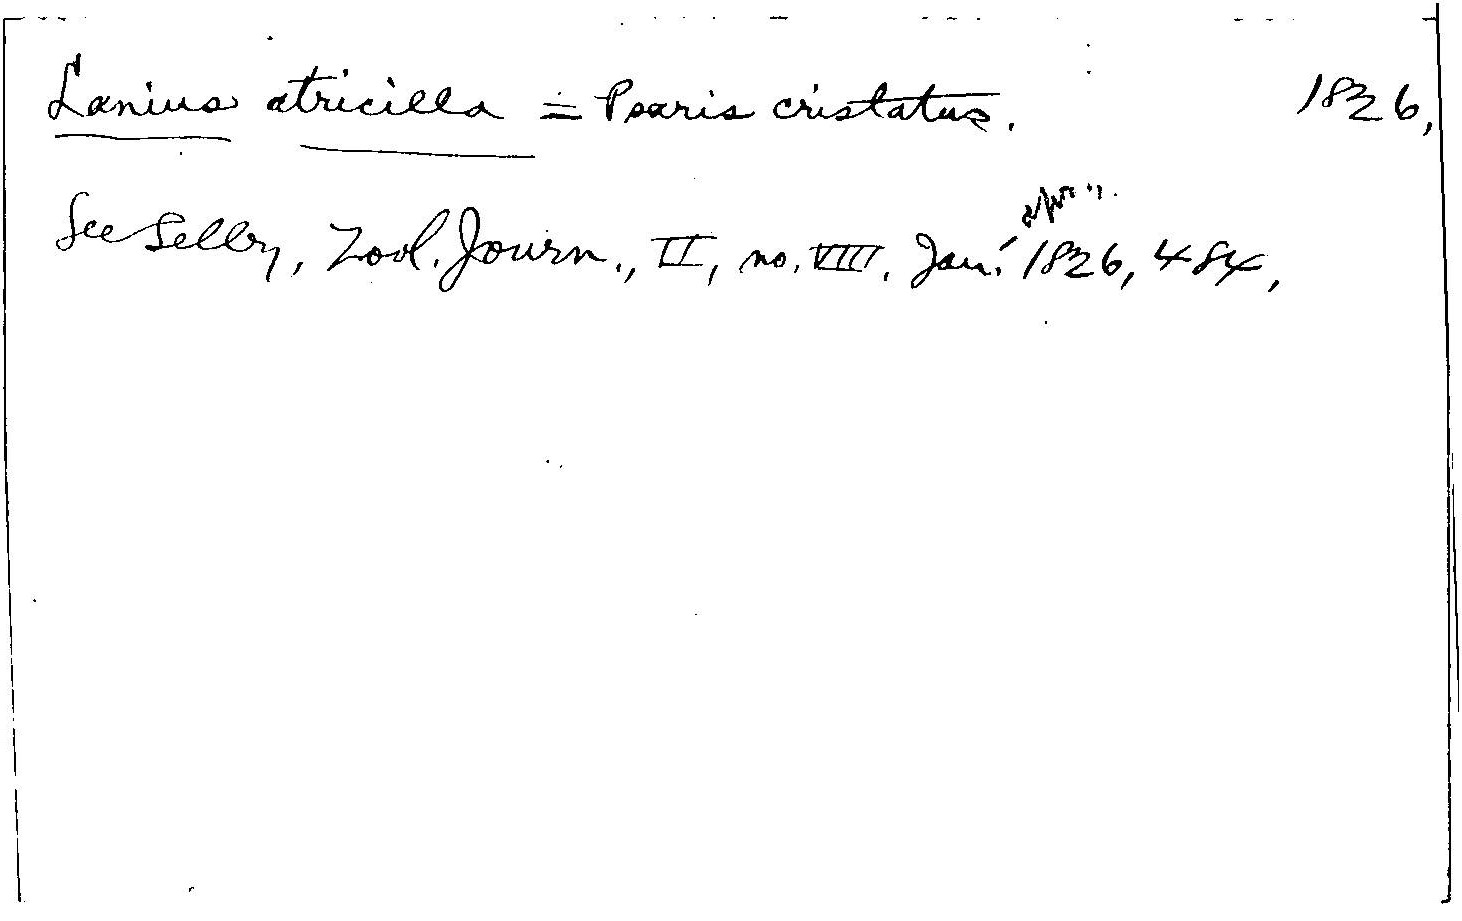 Lanius atricilla = Psaris cristatus. 1826,
See Selby, Zool. Journ., II, no. VIII. Jan. 1826, 484,